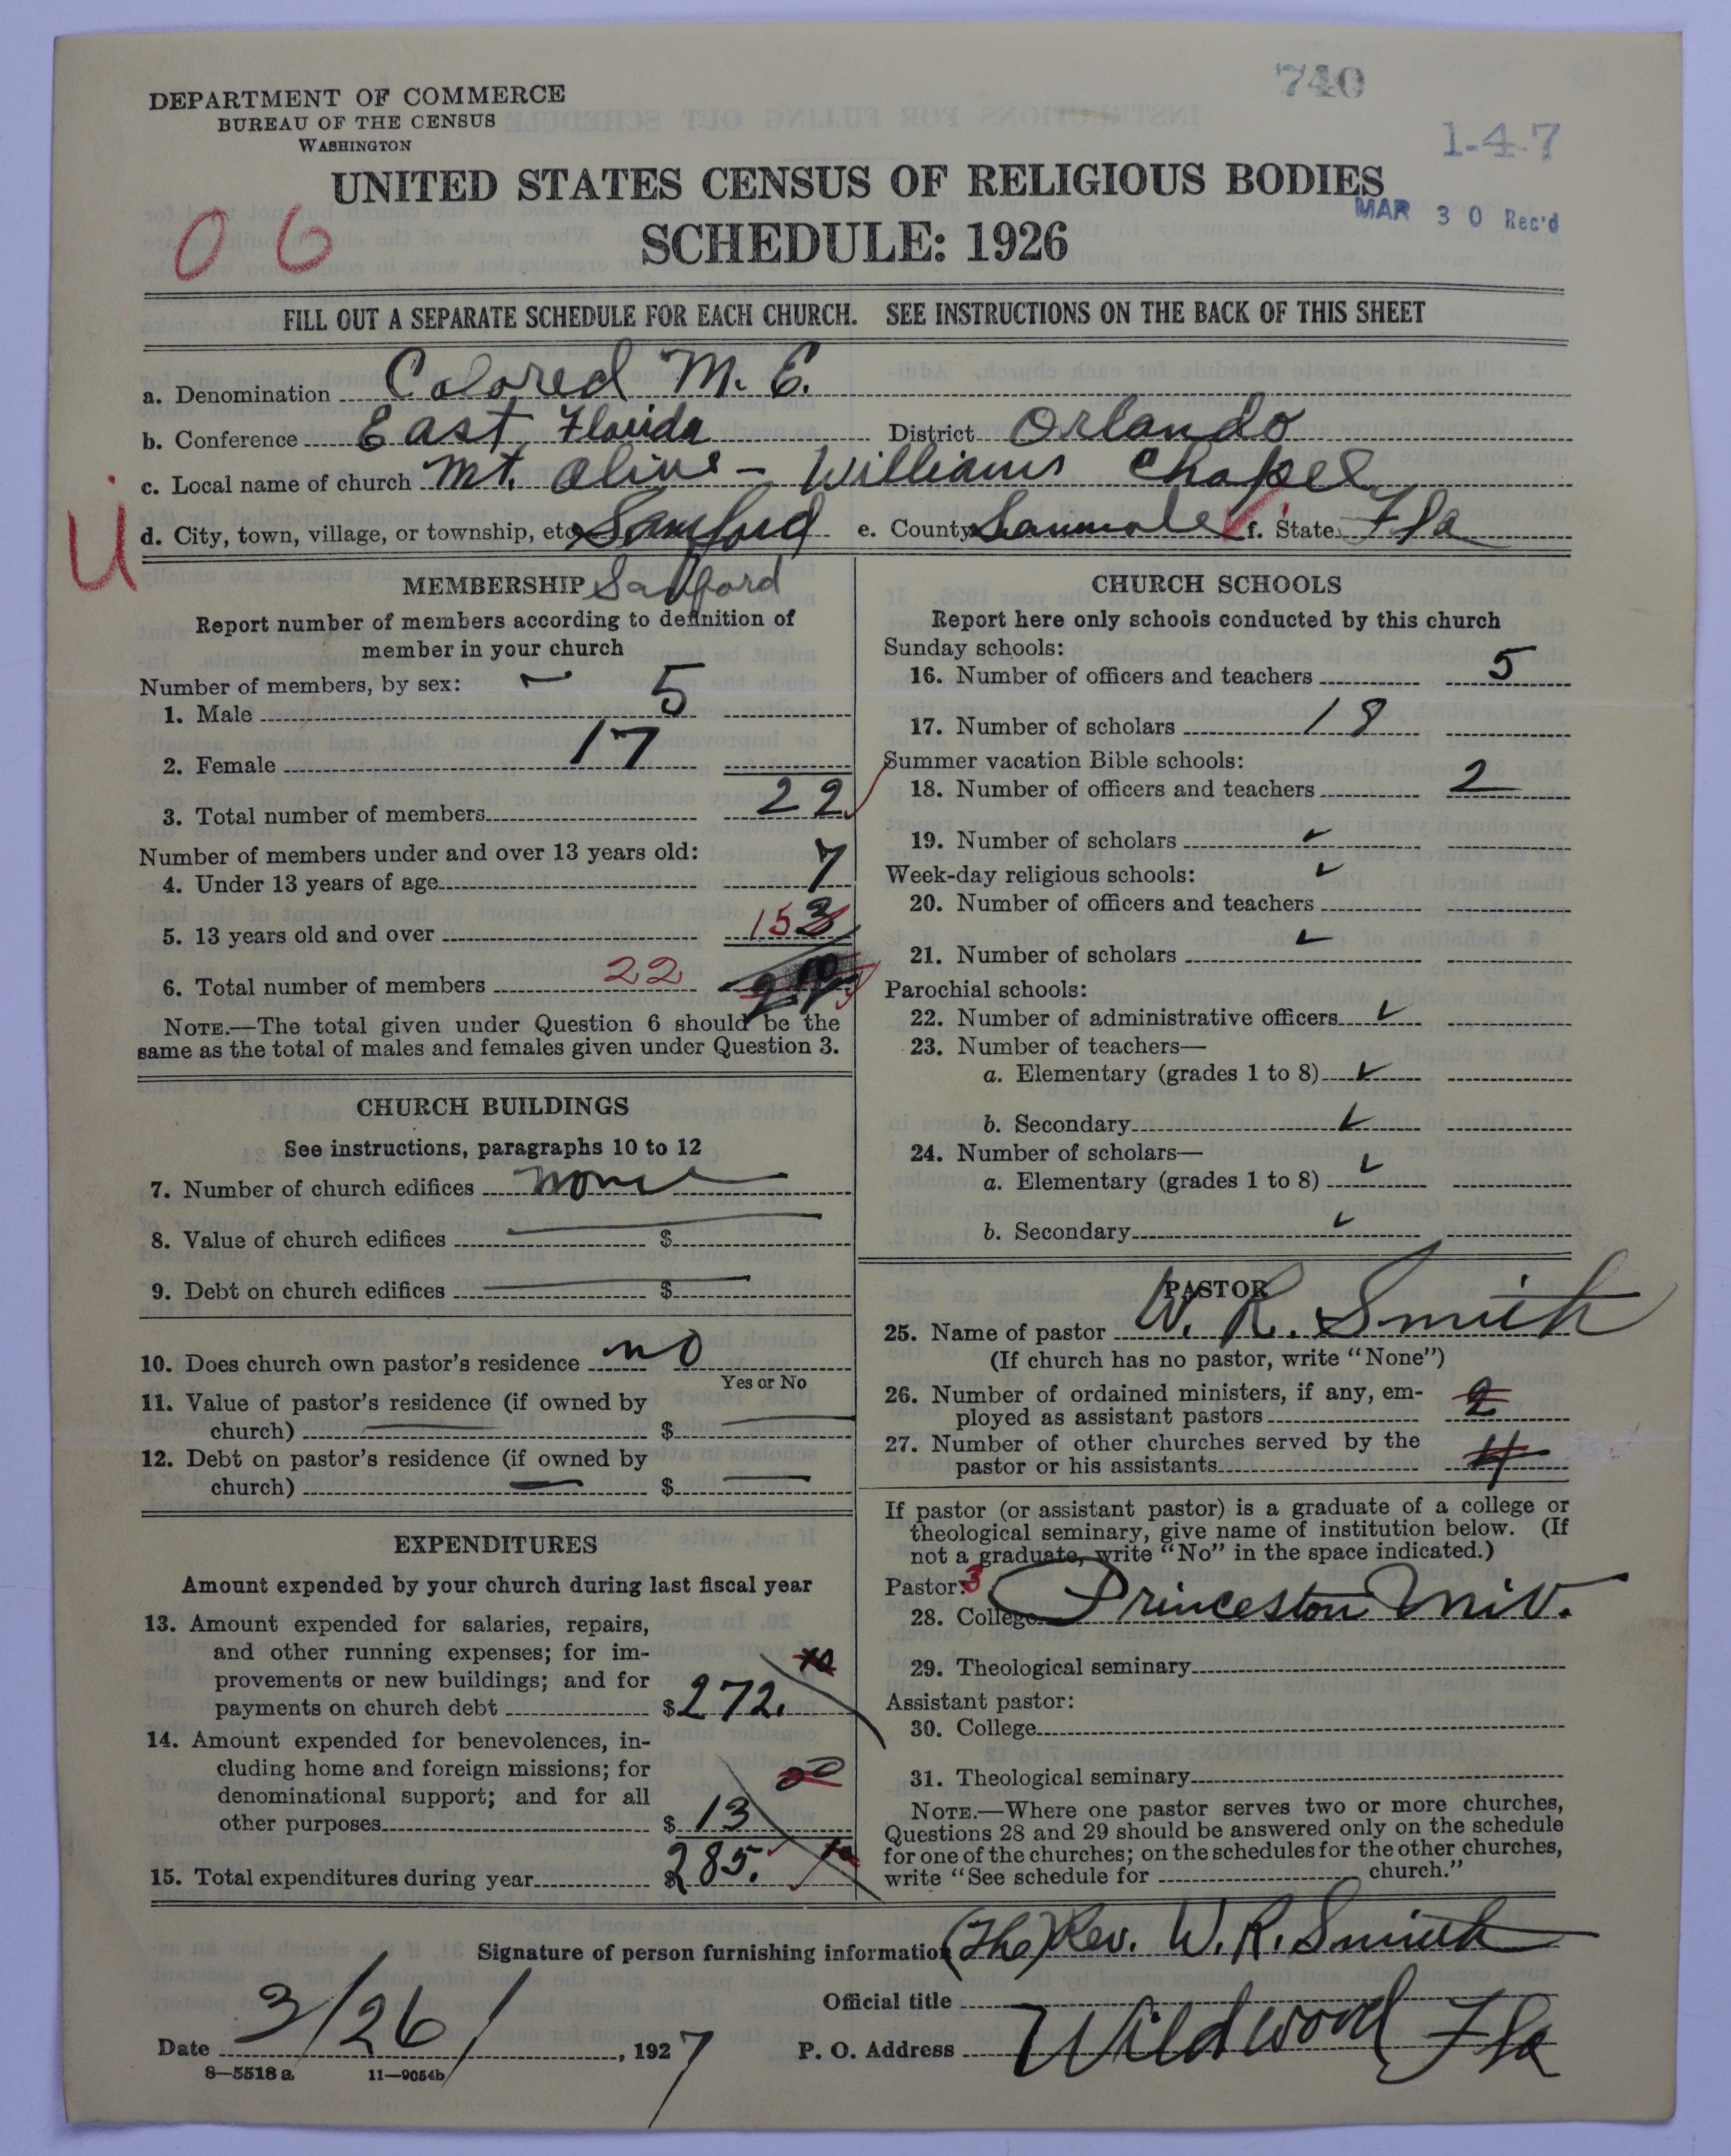 740
1-4-7
DEPARTMENT OF COMMERCE
BUREAU OF THE CENSUS
WASHINGTON
UNITED STATES CENSUS OF RELIGIOUS BODIES
MAR 30 Rec'd
SCHEDULE: 1926
06
FILL OUT A SEPARATE SCHEDULE FOR EACH CHURCH. SEE INSTRUCTIONS ON THE BACK OF THIS SHEET
a. Denomination Colored M. E.
b. Conference East Florida District Orlando
c. Local name of church Mt. Olive - Williams Chapel
U
d. City, town, village, or township, etc. Sanford e. County f. State Fla
MEMBERSHIP Sanford
Report number of members according to definition of
member in your church
Number of members, by sex:
1. Male 5
2. Female 17
3. Total number of members 22
Number of members under and over 13 years old:
4. Under 13 years of age 7
5. 13 years old and over 15 3
6. Total number of members 22
NOTE.—The total given under Question 6 should be the
same as the total of males and females given under Question 3.
CHURCH BUILDINGS
See instructions, paragraphs 10 to 12
7. Number of church edifices none
8. Value of church edifices $
9. Debt on church edifices $
10. Does church own pastor's residence no
Yes or No
11. Value of pastor's residence (if owned by
church) $
12. Debt on pastor's residence (if owned by
church) $
EXPENDITURES
Amount expended by your church during last fiscal year
13. Amount expended for salaries, repairs,
and other running expenses; for im-
provements or new buildings; and for
payments on church debt $272.
14. Amount expended for benevolences, in-
cluding home and foreign missions; for
denominational support; and for all
other purposes $ 13 00
15. Total expenditures during year $ 285.
CHURCH SCHOOLS
Report here only schools conducted by this church
Sunday schools:
16. Number of officers and teachers 5
17. Number of scholars 18
Summer vacation Bible schools:
18. Number of officers and teachers 2
19. Number of scholars
Week-day religious schools:
20. Number of officers and teachers
21. Number of scholars
Parochial schools:
22. Number of administrative officers
23. Number of teachers—
a. Elementary (grades 1 to 8)
b. Secondary
24. Number of scholars—
a. Elementary (grades 1 to 8)
b. Secondary
PASTOR
25. Name of pastor W. R. Smith
(If church has no pastor, write "None")
26. Number of ordained ministers, if any, em-
ployed as assistant pastors 2
27. Number of other churches served by the
pastor or his assistants 4
If pastor (or assistant pastor) is a graduate of a college or
theological seminary, give name of institution below. (If
not a graduate, write "No" in the space indicated.)
Pastor: 3
28. College Princeston Univ.
29. Theological seminary
Assistant pastor:
30. College
31. Theological seminary
NOTE.—Where one pastor serves two or more churches,
Questions 28 and 29 should be answered only on the schedule
for one of the churches; on the schedules for the other churches,
write "See schedule for church."
Signature of person furnishing information (The) Rev. W. R. Smith
Official title
Date 3/26/, 1927
P. O. Address Wildwood Fla
8—5518 a 11—9054b